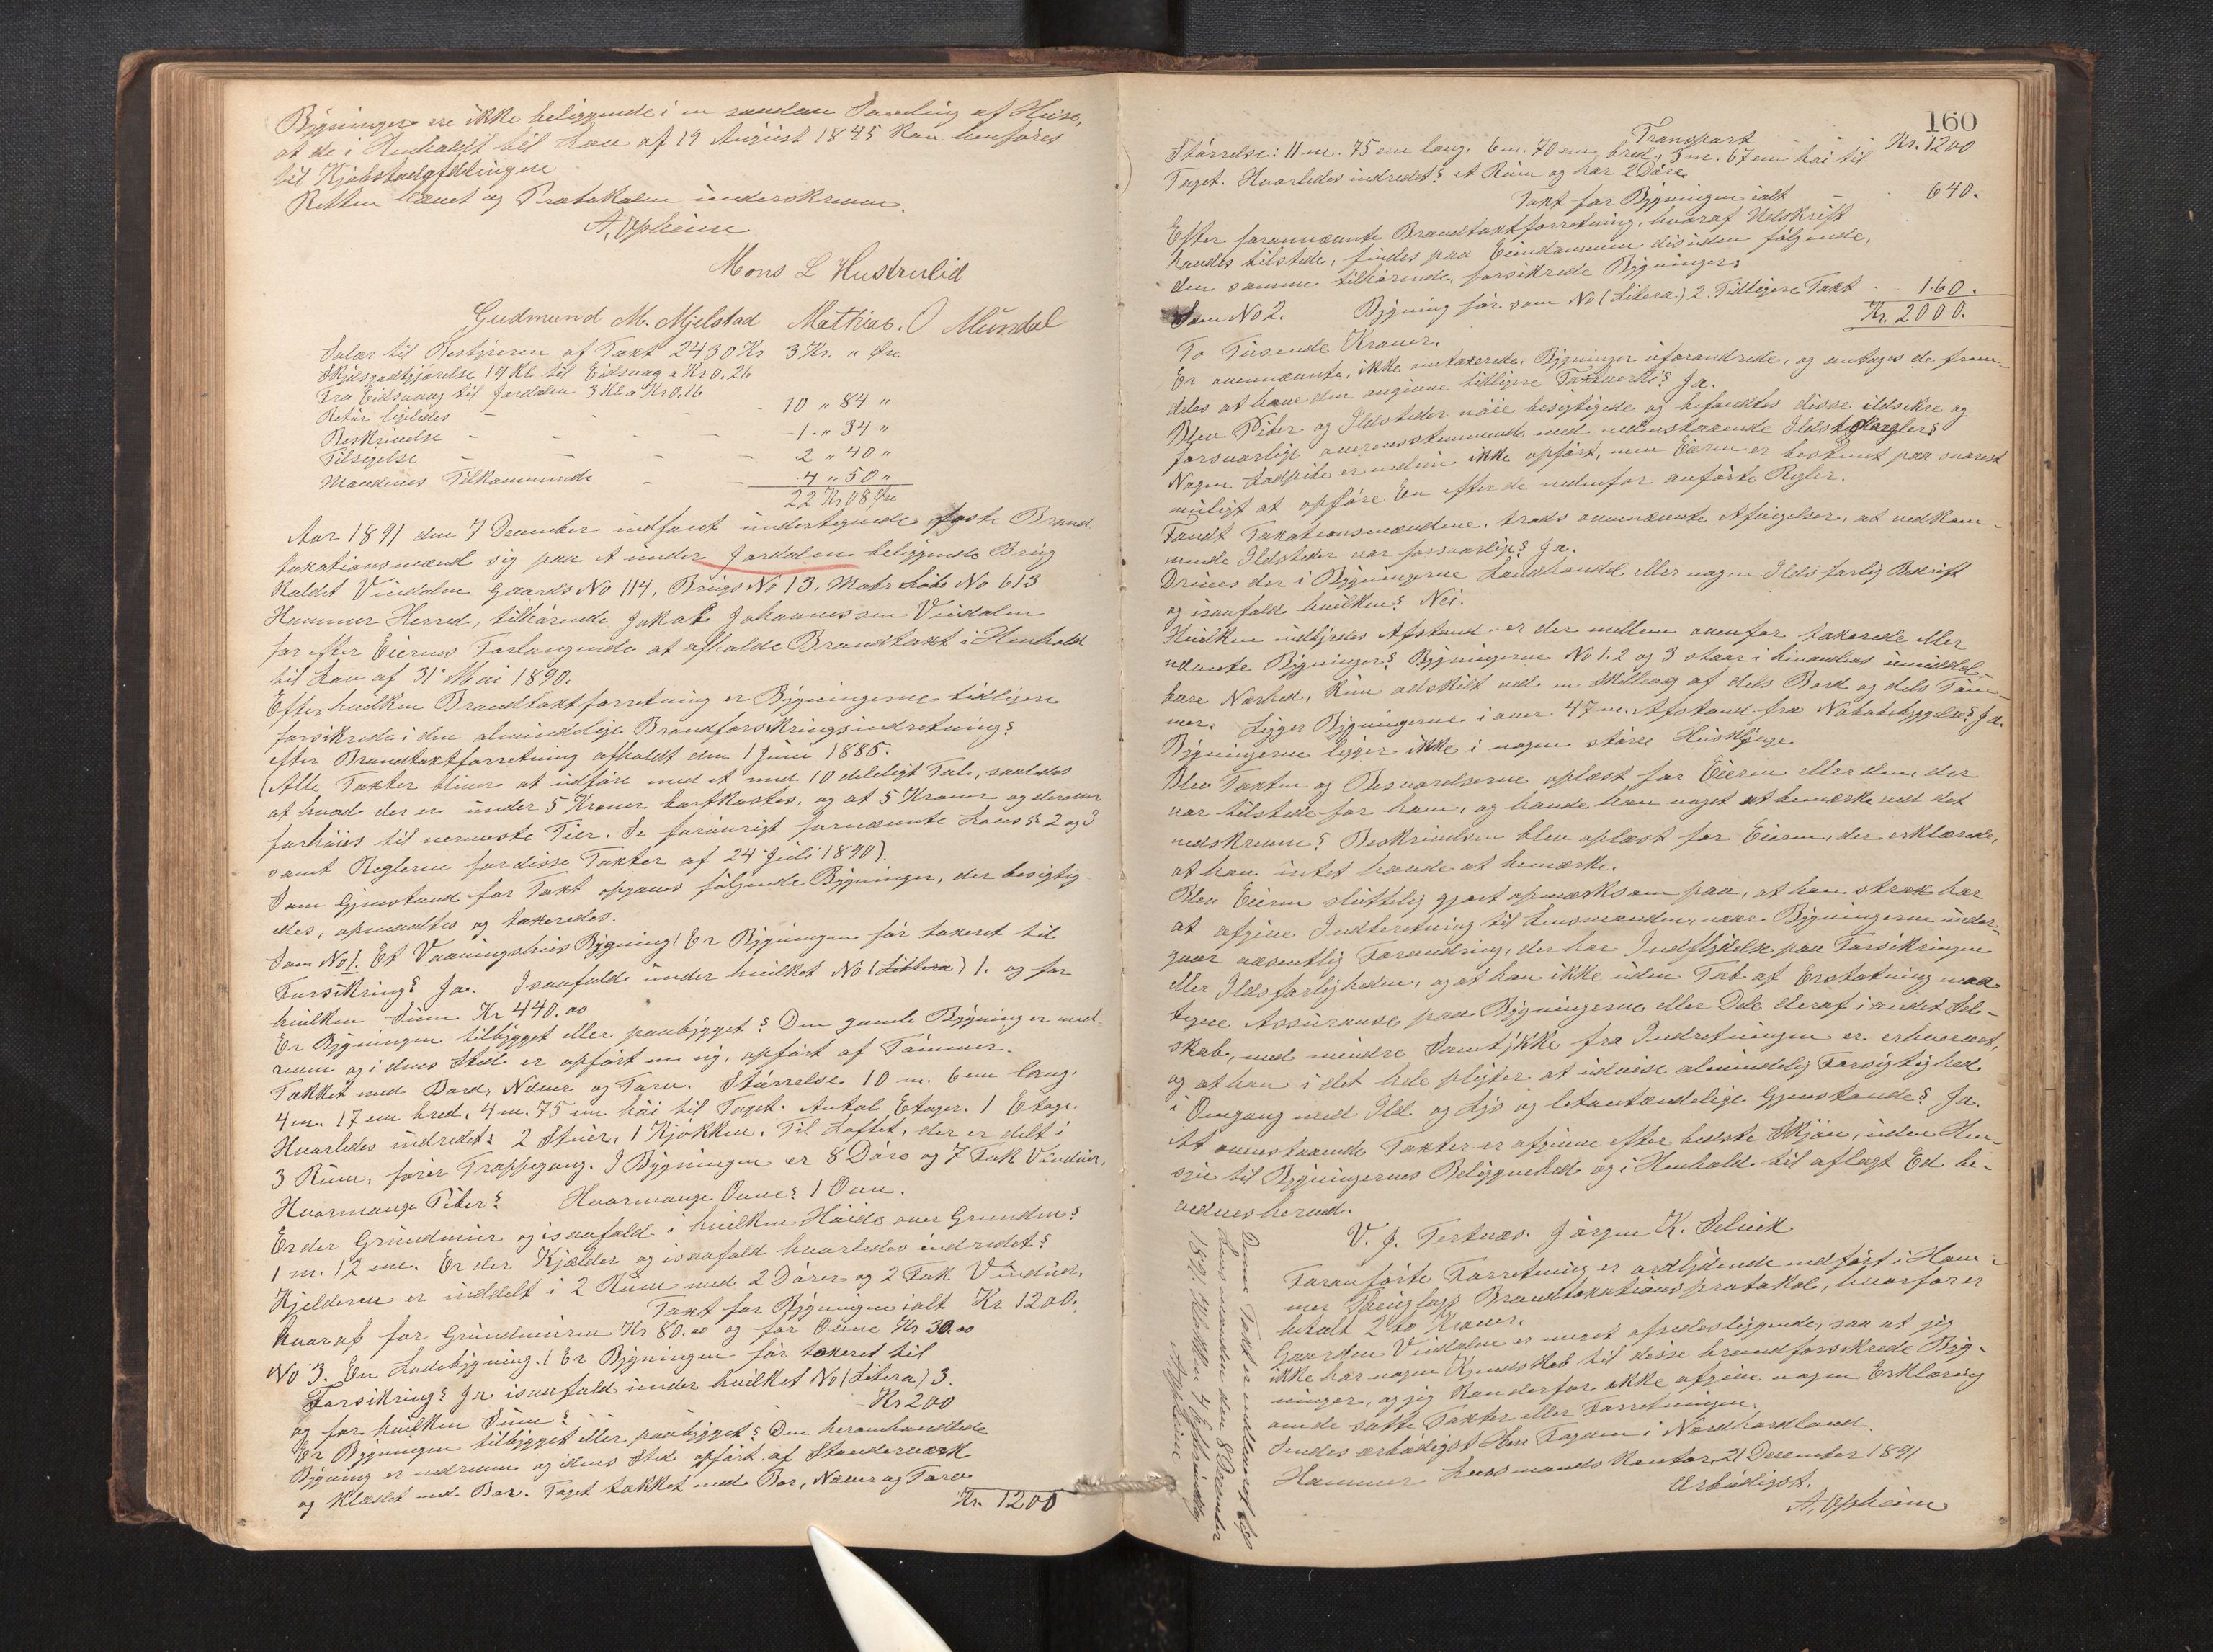 Bygninger ere ikke beliggende i en saadan Samling af Huse,
at de i Henhold til Lov af 19 August 1845 kan henføres
til Kjøbstadafdelingen
Retten hævet og Protokolen underskreven.
A, Opheim
Mons L Hustrulid
Gudmund M. Mjelstad Mathias. O Mundal
Salær til Bestyreren af Taxt 2430 Kr 3 Kr. " Øre
Skydsgodtgjørelse 19 Kl. til Eidsvaag a Kr 0.26
Fra Eidsvaag til Jordalen 3 Kl a Kr 0.16
Retur ligeledes - - - 10 " 84 "
Beskrivelse - - - - 1. " 34 "
Tilsigelse - - - 2 " 40 "
Mændenes Tilkommende - - 4 " 50 "
22 Kr 08 Øre
Aar 1891 den 7 December indfandt undertegnede faste Brand
taxationsmænd sig paa et under Jordalen beliggende Brug
kaldet Vindalen Gaards No 114, Brugs No 13, Matr Løb No 613
Hammer Herred, tilhørende Jakob Johannessen Vindalen
for efter Eierens Forlangende at afholde Brandtaxt i Henhold
til Lov af 31 Mai 1890.
Efter hvilken Brandtaxtforretning er Bygningerne tidligere
forsikrede i den almindelige Brandforsikringsindretning?
efter Brandtaxtforretning afholdt den 1 Juni 1885.
(Alle Taxter bliver at udføre med et med 10 deleligt Tal, saaledes
at hvad der er under 5 Kroner bortkastes, og at 5 Kroner og derover
forhøies til nærmeste Tier. Se forøvrigt fornævnte Lovs § 2 og 3
samt Reglerne for disse Taxter af 24 Juli 1890).
Som Gjenstand for Taxt opgaves følgende Bygninger, der besigtig-
edes, opmaaltes og taxeredes.
Som No 1. Et Vaaningshus Bygning (Er Bygningen før taxeret til
Forsikring? Ja. Isaafald under hvilket No (Littera) 1. og for
hvilken Sum Kr 440.00
Er Bygningen tilbygget eller paabygget? Den gamle Bygning er ned-
reven og i dens Sted er opført en ny, opført af Tømmer.
Tækket med Bord, Næver og Torv. Størrelse 10 m. 6 cm lang.
4 m. 17 cm bred, 4 m. 75 cm høi til Taget. Antal Etager. 1 Etage.
Hvorledes indredet? 2 Stuer, 1 Kjøkken. Til Loftet, der er delt i
3 Rum, fører Trappegang. I Bygningen er 8 Døre og 7 Fak Vinduer.
Hvormange Piber? Hvormange Ovne? 1 Ovn.
Er der Grundmur og isaafald i hvilken Høide over Grunden?
1 m. 12 cm. Er der Kjælder og isaafald hvorledes indredet?
Kjelderen er inddelt i 2 Rum med 2 Dører og 2 Fak Vinduer.
Taxt for Bygningen ialt Kr 1200.
hvoraf for Grundmuren Kr 80.00 og for Ovne Kr 30.00
No 3. En Ladebygning. (Er Bygningen før taxeret til
Forsikring? Ja isaafald under hvilket No (Litera) 3.
og for hvilken Sum? - Kr 200
Er Bygningen tilbygget eller paabygget? Den heromhandlede
Bygning er nedreven og i dens Sted opført af Standerværk
og klædet med Bor. Taget tækket med Bor, Næver og Torv
Kr. 1200
160
Transport - - - Kr. 1200
Størrelse: 11 m. 75 cm lang, 6 m. 70 cm bred, 5 m. 67 cm høi til
Taget. Hvorledes indredet? et Rum og har 2 Døre.
Taxt for Bygningen ialt - - 640.
Efter forannævnte Brandtaxtforretning, hvoraf Udskrift
havdes tilstede, findes paa Eiendommen disuden følgende,
den samme tilhørende, forsikrede Bygninger:
Som No 2. Bygning før som No (Litera) 2. Tidligere Taxt - 160.
Kr. 2000.
To Tusende Kroner.
Er ovennævnte, ikke omtaxerede, Bygninger uforandrede, og antages de frem-
deles at have den angivne tidligere Taxtværdi? Ja.
Blev Piber og Ildsteder nøie besigtigede og befandtes disse ildsikre og
forsvarlige overensstemmende med nedenstaaende Ildstedregler?
Nogen Ladpibe er endnu ikke opført, men Eieren er bestemt paa snarest
muligt at opføre En efter de nedenfor anførte Regler.
Fandt Taxationsmændene, trods ovennævnte Afvigelser, at vedkom-
mende Ildsteder var forsvarlige? Ja.
Drives der i Bygningerne Landhandel eller nogen Ildsfarlig Bedrift
og isaafald hvilken? Nei.
Hvilken indbyrdes Afstand er der mellem ovenfor taxerede eller
nævnte Bygninger? Bygningerne No 1. 2 og 3 staar i hinandens umiddel-
bare Nærhed, kun adskilt ved en Skillevæg af dels Bord og dels Tøm-
mer. Ligger Bygningerne i over 47 m. Afstand fra Nabobebyggelse? Ja.
Bygningerne ligger ikke i nogen større Husklynge.
Blev Taxten og Besvarelserne oplæst for Eieren eller den, der
var tilstede for ham, og havde han noget at bemærke ved det
nedskrevne? Beskrivelsen blev oplæst for Eieren, der erklærede,
at han intet havde at bemærke.
Blev Eieren sluttelig gjort opmærksom paa, at han strax har
at afgive Indberetning til Lensmanden, naar Bygningerne under-
gaar væsentlig Forandring, der har Indflydelse paa Forsikringen
eller Ildsfarligheden, og at han ikke uden Tab af Erstatning maa
tegne Assurance paa Bygningerne eller Dele deraf i andet Sel-
skab, med mindre Samtykke fra Indretningen er erhvervet,
og at han i det hele pligter at udvise almindelig Forsigtighed
i Omgang med Ild og Lys og letantændelige Gjenstande? Ja.
At ovenstaaende Taxter er afgivne efter bedste Skjøn, uden Hen-
syn til Bygningernes Beliggenhed og i Henhold til aflagt Ed be-
vidnes herved.
V. J. Tertnæs. Jørgen K. Selvik
Foranførte Forretning er ordlydende indført i Ham-
mer Thinglags Brandtaxationsprotokol, hvorfor er
betalt 2 to Kroner.
Gaarden Vindalen er meget afsidesliggende, saa at jeg
ikke har nogen Kjendskab til disse brandforsikrede Byg-
ninger, og jeg kan derfor ikke afgive nogen Erklæring
om de satte Taxter eller Forretningen.
Sendes ærbødigst Herr Fogden i Nordhordland.
Hammer Lensmandskontor, 21 December 1891
Ærbødigst.
A, Opheim
Denne Taxt er indleveret til
Lensmanden den 8 December
1891. Klokken 4 Eftermiddag
A Opheim